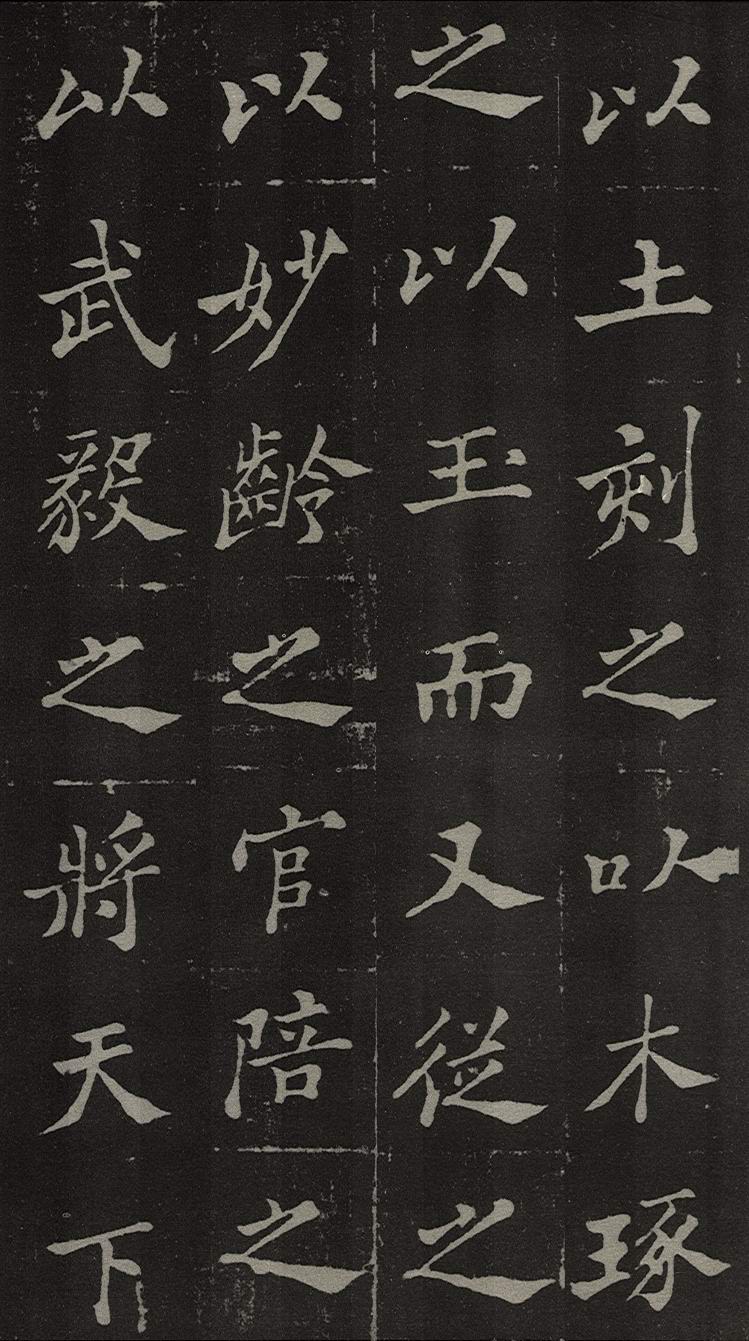 以土刻之㕥木琢
之以玉而又從之
以妙齡之官陪之
以武毅之將天下